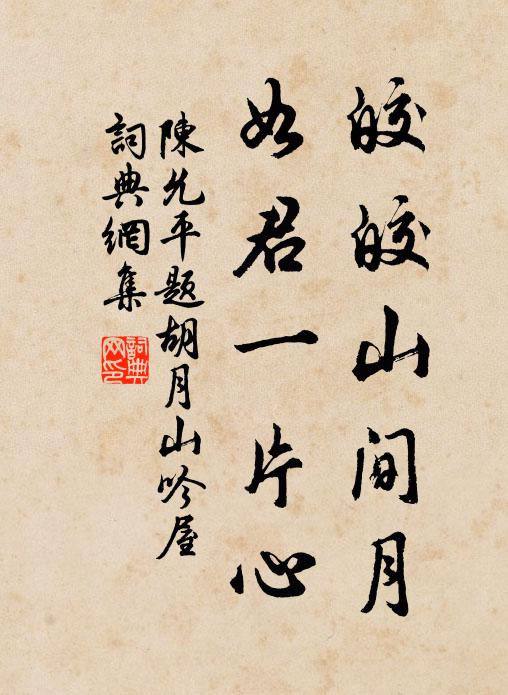 皎皎山间月
如君一片心
陳允平题胡月山吟屋
詞典網集
詞典网印